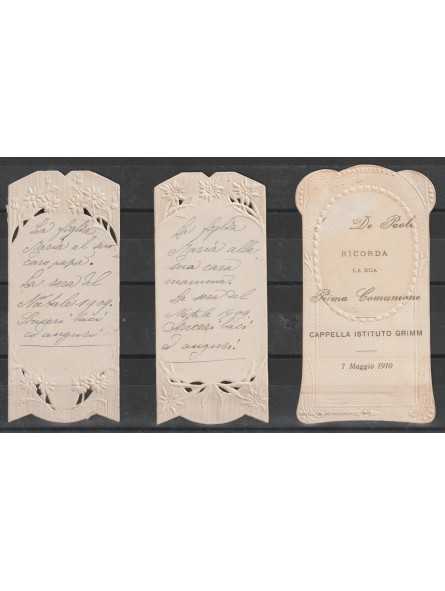 La figlia
Maria al suo
caro papà.
La sera del
Natale 1909.
Sinceri baci
ed auguri
La figlia
Maria alla
sua cara
mamma.
La sera del
Natale 1909.
Sinceri baci
ed auguri
De Paoli
RICORDA
LA SUA
Prima Comunione
CAPPELLA ISTITUTO GRIMM
7 Maggio 1910